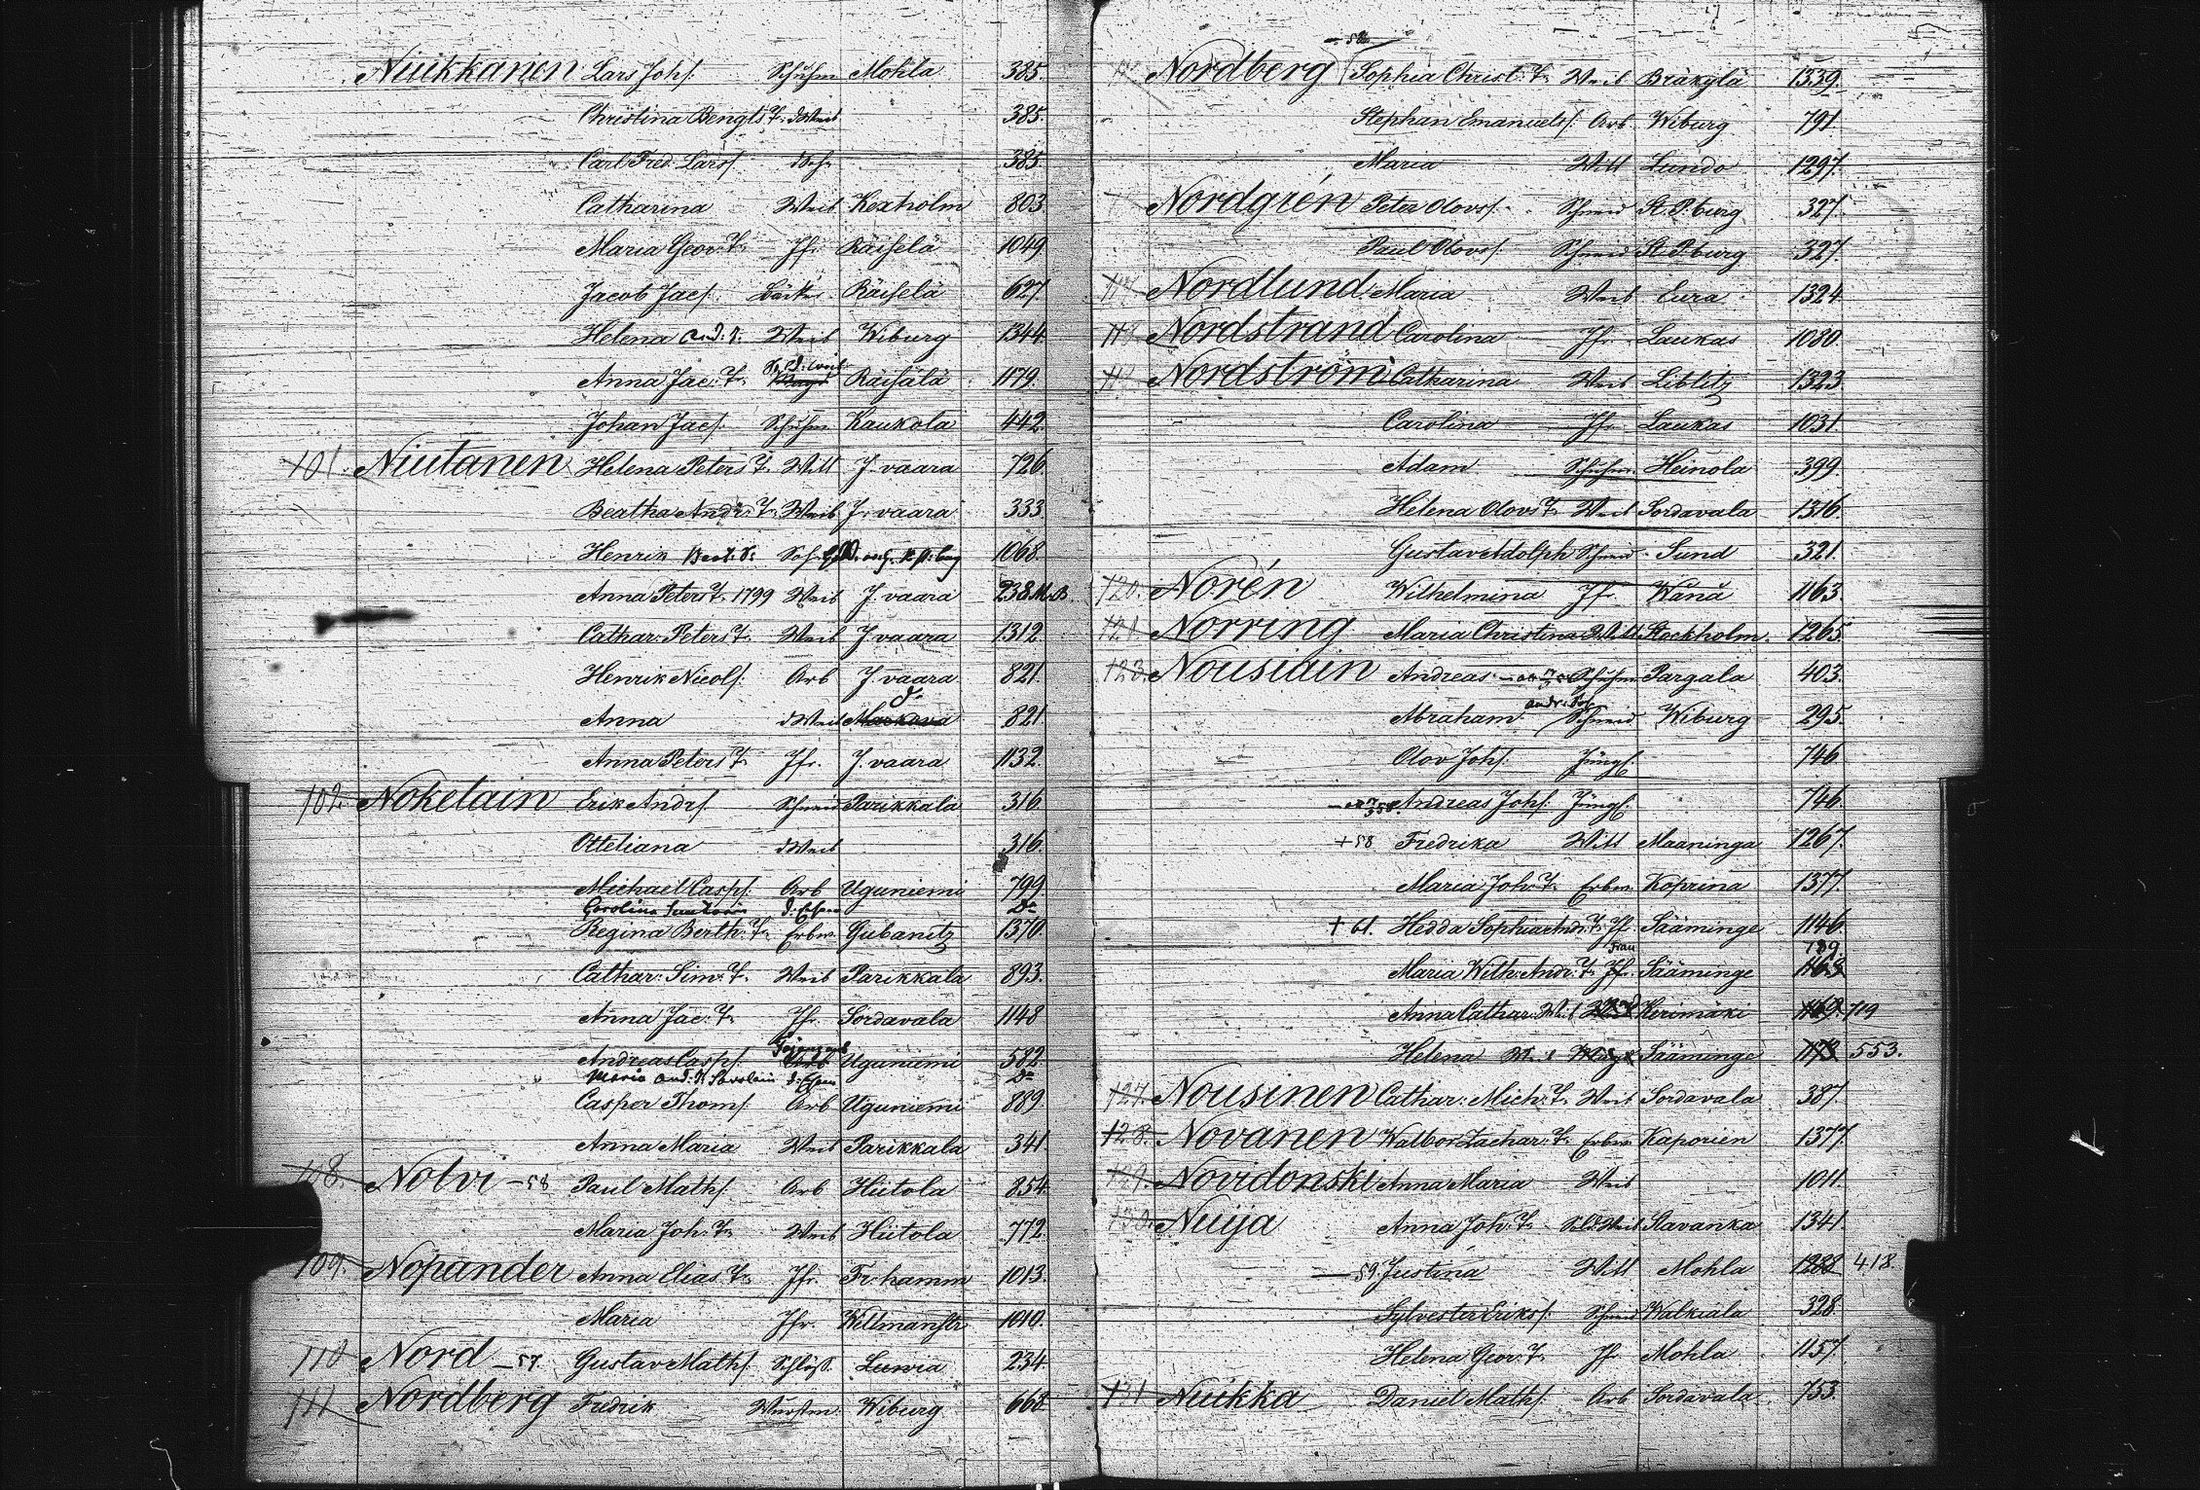 Niukkanen Lars Johs. Schuhm Mohla 385.
Christina Bengts T. d Weib 385.
Carl Fred. Larss. 385.
Catharina Weib Kexholm 803.
Maria Geor: T. Jfr. Räisälä 1049.
Jacob Jacs. Bäcker Räisälä 627.
Helena And. T. Weib Wiburg 1344.
Anna Jac: T. Räisälä 1179.
Johan Jacs. Schuhm Kaukola 442.
101. Niutanen Helena Peters T. Witt J. vaara 726.
Beatha Andr: T. Weib J. vaara 333.
Henrik 1068.
Anna Peters T. 1799 Weib J. vaara 238. M. B.
Cathar: Peters T. Weib J. vaara 1312.
Henrik Nicols. Arb J. vaara 821.
Anna d Weib 821.
Anna Peters T. Jfr. J. vaara 1132.
102. Noketain Erik Andrs. Schneid Parikkala 316.
Otteliana d Weib 316.
Michael Casps. Arb Uguniemi 799.
Carolina
Regina Berth: T. Erbw Gubanitz 1370.
Cathar: Sim: T. Weib Parikkala 893.
Anna Jac: T. Jfr. Sordavala 1148
Andreas Casps. Uguniemi 582.
Maria And. T. Savolain
Casper Thoms. Arb Uguniemi 889.
Anna Maria Weib Parikkala 341.
108. Nolvi - 58 Paul Maths. Arb Hiitola 854.
Maria Joh: T. Weib Hiitola 772.
109. Nopander Anna Elias T. Jfr. Fr. hamm 1013.
Maria Jfr. Willmanstr 1010.
110 Nord - 57. Gustav Maths. Schloss. Luwia 234.
111 Nordberg Fredrik Wurstm. Wiburg 668.
Nordberg Sophia Christ: T. Weib Bräkylä 1339.
Stephan Emanuels. Arb Wiburg 791.
Maria Witt Lundo 1297.
Nordgrén Peter Olovs. Schneid St. P. burg 327.
Paul Olovs. Schneid St. P. burg 327.
Nordlund Maria Weib Eura 1324.
Nordstrand Carolina Jfr. Laukas 1080.
Nordström Catharina Weib Liblitz 1323.
Carolina Jfr. Laukas 1031.
Adam Schuhm. Heinola 399.
Helena Olovs T. Weib Sordavala 1316.
Gustav Adolph Schneid Sund 321.
120. Norén Wilhelmina Jfr. Wånå 1163.
121. Norring Maria Christina Witt Stockholm. 1265.
123. Nousiain Andreas Schuhm Pargala 403.
Abraham Schneid Wiburg 295.
Olov Johs. Jüngl. 746.
Andreas Johs. Jüngl. 746.
+ 58 Fredrika Witt Maaninga 1267.
Maria Joh: T. Erbw Koprina 1377.
+ 61. Hedda Sophia Andr: T. Jfr Sääminge 1146.
Maria Wilh: Andr: T. Frau Sääminge 789
Anna Cathar: Kerimäki 719
Helena Sääminge 553.
127. Nousinen Cathar: Mich: T. Weib Sordavala 387.
128. Novanen Walbor Zachar: T. Erbw Kaporien 1377.
129. Novidonski Anna Maria Weib 1011.
130. Nuija Anna Joh: T. Sold Weib Slavanka 1341.
- 59. Justina Witt Mohla 418.
Sylvester Eriks. Schneid Walkiala 328.
Helena Geor: T. Jfr Mohla 1157.
131 Nuikka Daniel Maths. Arb Sordavala 753.